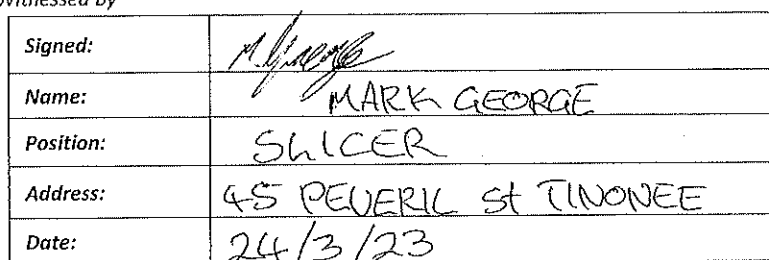 Witnessed by
Signed: M George
Name: MARK GEORGE
Position: SLICER
Address: 45 PEVERIL St TINONEE
Date: 24/3/23